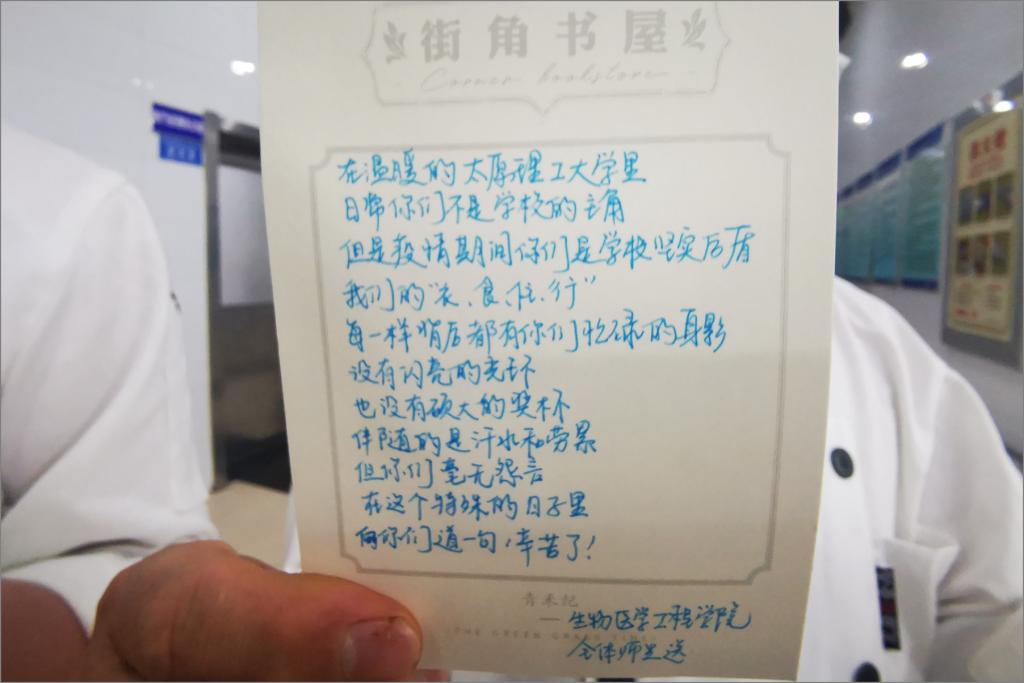 街角书屋
Corner bookstore
在温暖的太原理工大学里
日常你们不是学校的主角
但是疫情期间你们是学校坚实后盾
我们的"衣、食、住、行"
每一样背后都有你们忙碌的身影
没有闪亮的光环
也没有硕大的奖杯
伴随的是汗水和劳累
但你们毫无怨言
在这个特殊的日子里
向你们道一句,辛苦了!
青禾记
—生物医学工程学院
全体师生送